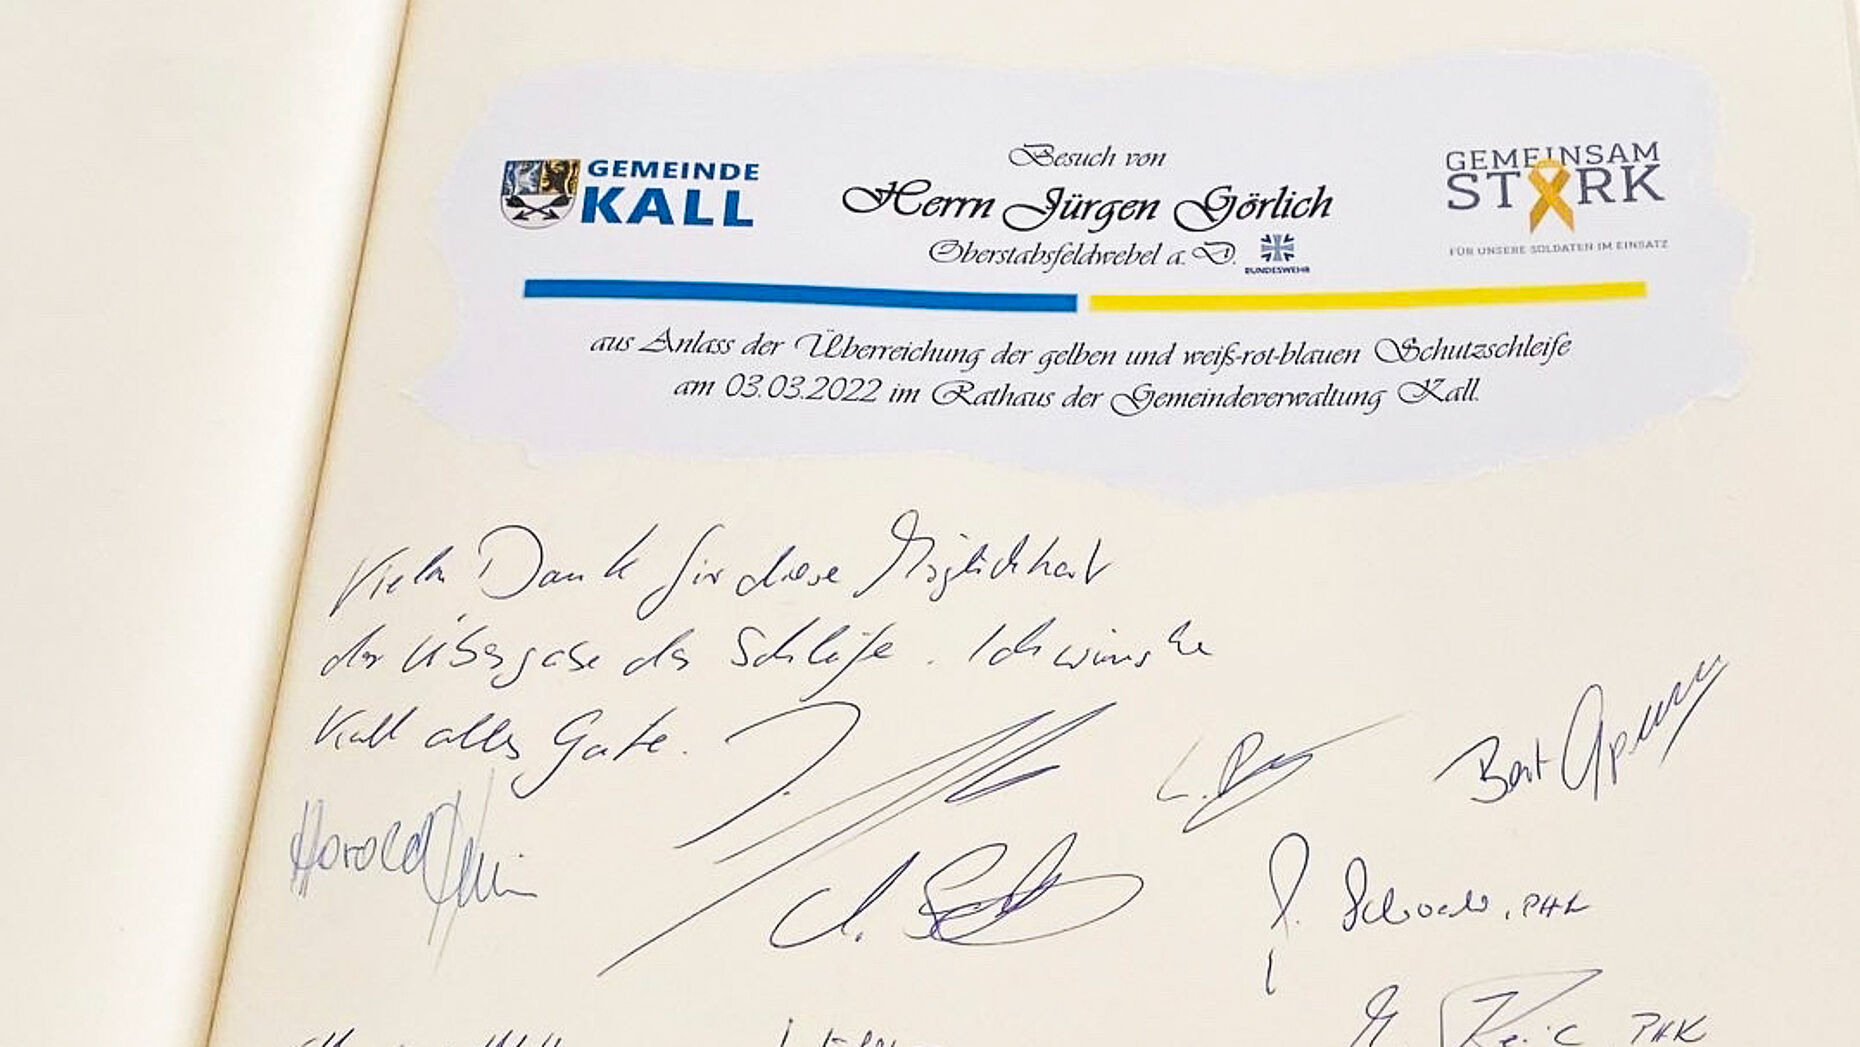 GEMEINDE
KALL
Besuch von
Herrn Jürgen Görlich
Oberstabsfeldwebel a. D.
BUNDESWEHR
GEMEINSAM
STARK
FÜR UNSERE SOLDATEN IM EINSATZ
aus Anlass der Überreichung der gelben und weiß-rot-blauen Schutzschleife
am 03.03.2022 im Rathaus der Gemeindeverwaltung Kall.
Vielen Dank für diese Möglichkeit
der Übergabe der Schleife. Ich wünsche
Kall alles Gute.
Bert
Harald
PHK
PHK